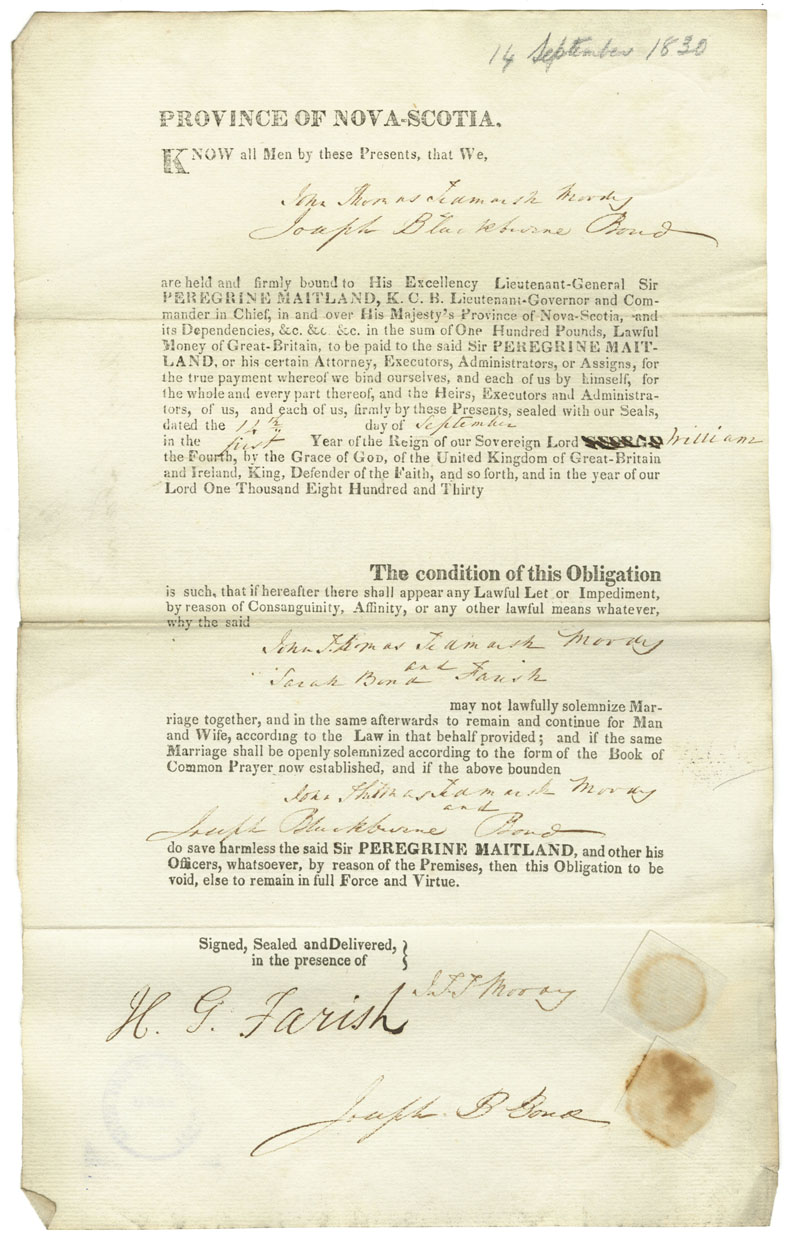 14 September 1830
PROVINCE OF NOVA-SCOTIA.
KNOW all Men by these Presents, that We,
John Thomas Tidmarsh Moody
Joseph Blackburne Bond
are held and firmly bound to His Excellency Lieutenant-General Sir
PEREGRINE MAITLAND, K. C. B. Lieutenant-Governor and Com-
mander in Chief, in and over His Majesty's Province of Nova-Scotia, and
its Dependencies, &c. &c. &c. in the sum of One Hundred Pounds, Lawful
Money of Great-Britain, to be paid to the said Sir PEREGRINE MAIT-
LAND, or his certain Attorney, Executors, Administrators, or Assigns, for
the true payment whereof we bind ourselves, and each of us by himself, for
the whole and every part thereof, and the Heirs, Executors and Administra-
tors, of us, and each of us, firmly by these Presents, sealed with our Seals,
dated the 14th day of September
in the first Year of the Reign of our Sovereign Lord GEORGE William
the Fourth, by the Grace of GOD, of the United Kingdom of Great-Britain
and Ireland, King, Defender of the Faith, and so forth, and in the year of our
Lord One Thousand Eight Hundred and Thirty
The condition of this Obligation
is such, that if hereafter there shall appear any Lawful Let or Impediment,
by reason of Consanguinity, Affinity, or any other lawful means whatever,
why the said
John Thomas Tidmarsh Moody
and
Sarah Bond Farish
may not lawfully solemnize Mar-
riage together, and in the same afterwards to remain and continue for Man
and Wife, according to the Law in that behalf provided; and if the same
Marriage shall be openly solemnized according to the form of the Book of
Common Prayer now established, and if the above bounden
John Thomas Tidmarsh Moody
and
Joseph Blackburne Bond
do save harmless the said Sir PEREGRINE MAITLAND, and other his
Officers, whatsoever, by reason of the Premises, then this Obligation to be
void, else to remain in full Force and Virtue.
Signed, Sealed and Delivered,
in the presence of
J. T. T Moody
H. G. Farish
Joseph B Bond